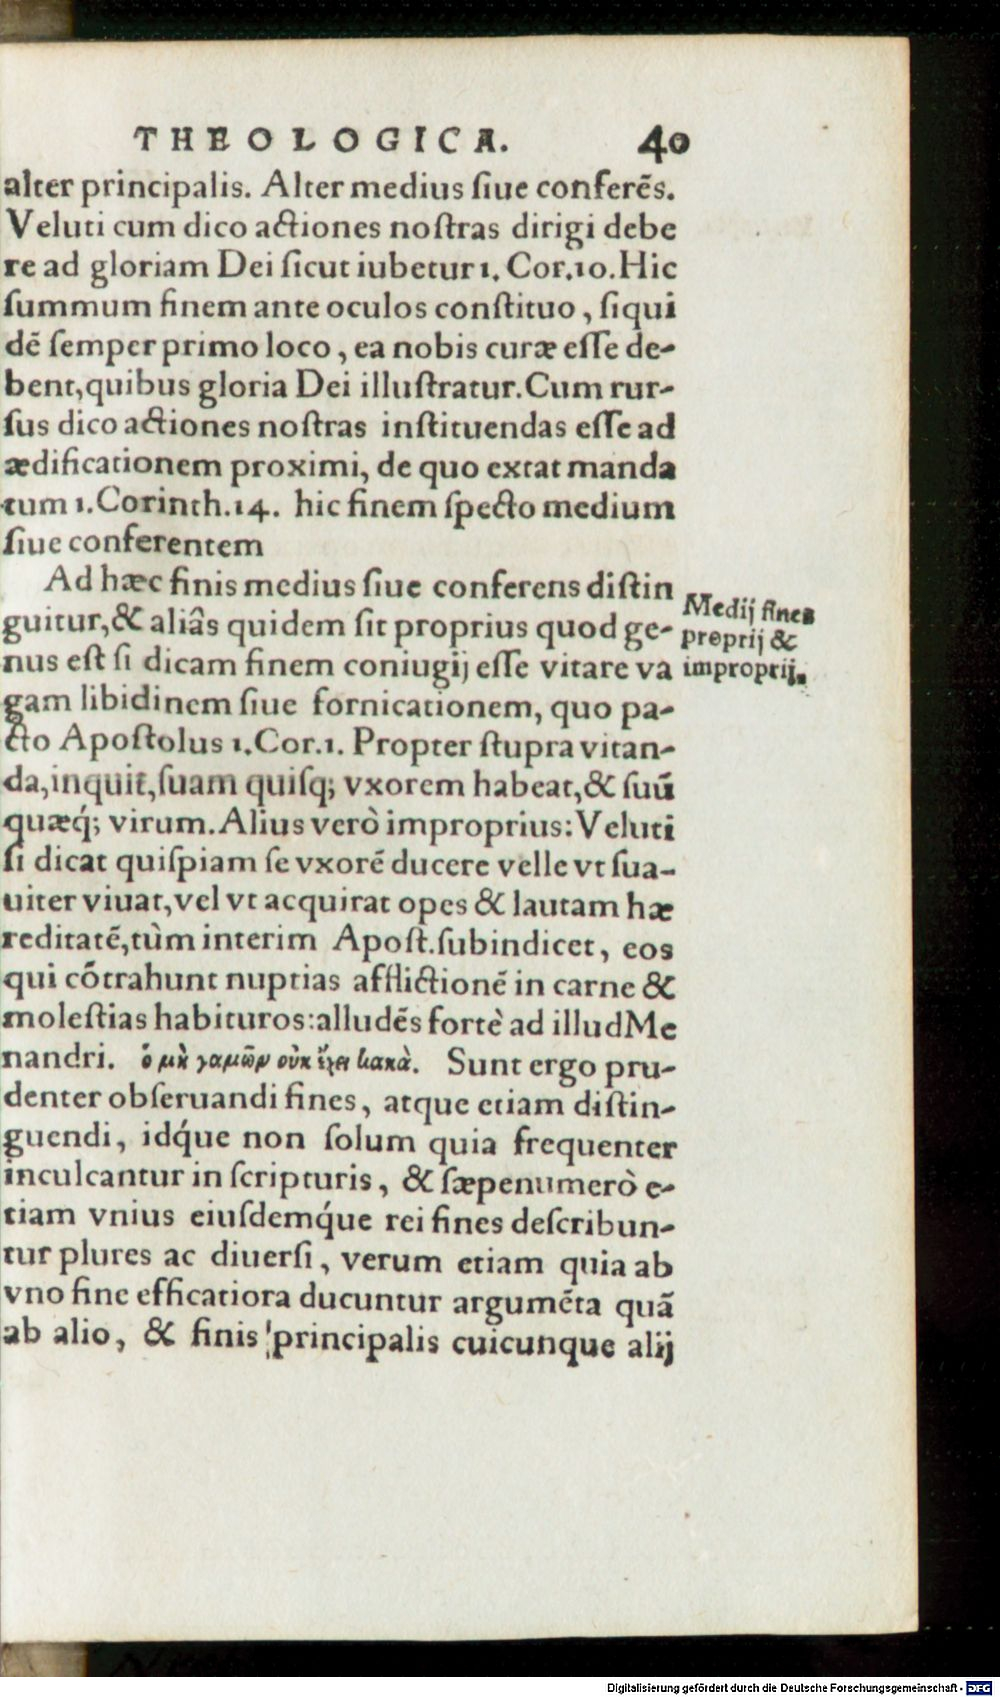 THEOLOGICA. 40
alter principalis. Alter medius ſiue conferẽs.
Veluti cum dico actiones noſtras dirigi debe
re ad gloriam Dei ſicut iubetur 1. Cor. 10. Hic
ſummum finem ante oculos conſtituo, ſiqui
dẽ ſemper primo loco, ea nobis curæ eſſe de-
bent, quibus gloria Dei illuſtratur. Cum rur-
ſus dico actiones noſtras inſtituendas eſſe ad
ædificationem proximi, de quo extat manda
tum 1. Corinth. 14. hic finem ſpecto medium
ſiue conferentem
Ad hæc finis medius ſiue conferens diſtin
guitur, & aliâs quidem ſit proprius quod ge-
nus eſt ſi dicam finem coniugij eſſe vitare va
gam libidinem ſiue fornicationem, quo pa-
cto Apoſtolus 1. Cor. 1. Propter ſtupra vitan-
da, inquit, ſuam quiſq; vxorem habeat, & ſuũ
quæq́; virum. Alius verò improprius: Veluti
ſi dicat quiſpiam ſe vxorẽ ducere velle vt ſua-
uiter viuat, vel vt acquirat opes & lautam hæ
reditatẽ, tùm interim Apoſt. ſubindicet, eos
qui cõtrahunt nuptias afflictionẽ in carne &
moleſtias habituros: alludẽs fortè ad illud Me
nandri. ὁ μὴ γαμῶν οὐκ ἔχει κακὰ. Sunt ergo pru-
denter obſeruandi fines, atque etiam diſtin-
guendi, idq́ue non ſolum quia frequenter
inculcantur in ſcripturis, & ſæpenumerò e-
tiam vnius eiuſdemq́ue rei fines deſcribun-
tur plures ac diuerſi, verum etiam quia ab
vno fine efficatiora ducuntur argumẽta quã
ab alio, & finis principalis cuicunque alij
Medij fines
proprij &
improprij.
Digitalisierung gefördert durch die Deutsche Forschungsgemeinschaft - DFG